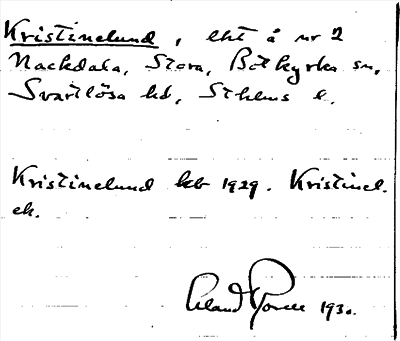 Kristinelund, lht å nr 2
Nackdala, Stora, Botkyrka sn,
Svartlösa hd, Sthlms l.
Kristinelund kb 1929. Kristinel.
ek.
1930.